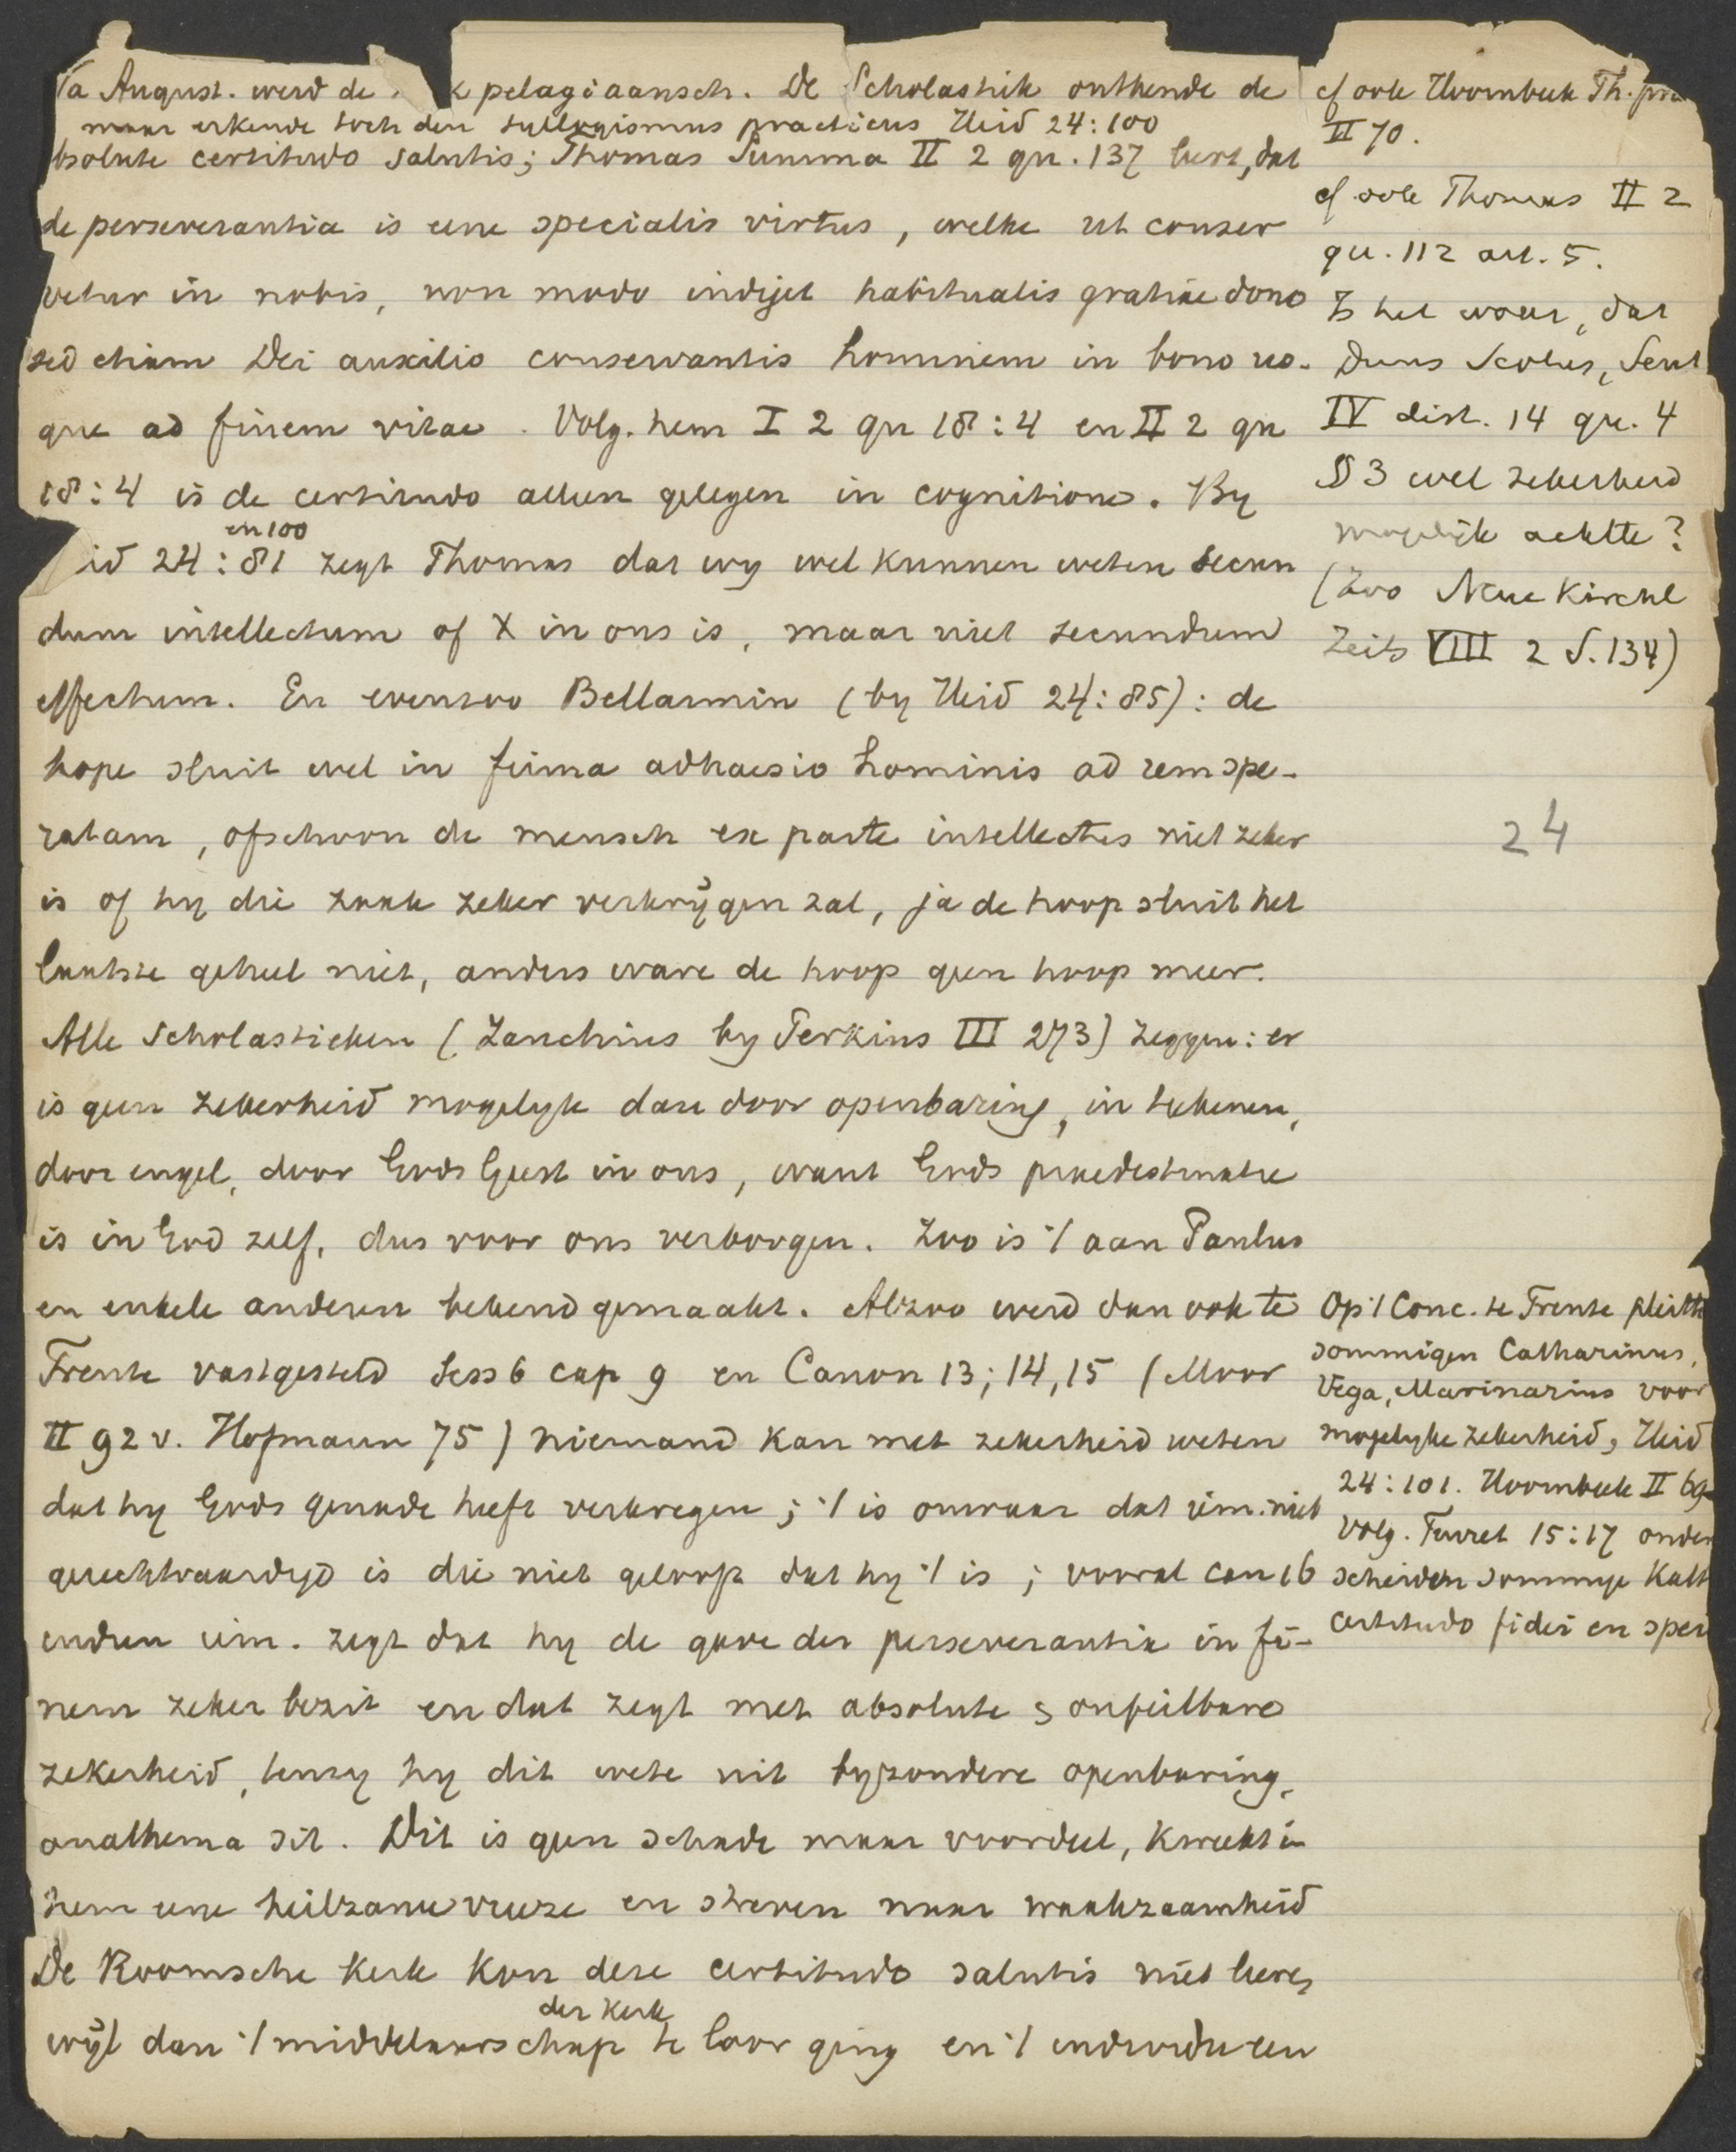 Na August. werd de k pelagiaansch. De Scholastik onthende de
maar erkende toch den syllogismus practicus Heid 24:100
bsolute certitudo salutis; Thomas Summa II 2 qu. 137 leert, dat
de perseverantia is eene specialis virtus, welke ut conser
vetur in nobis, non modo indiget habitualis gratiae dono
sed etiam Dei auxilio conservantis hominem in bono us-
que ad finem vitae. Volg. hem I 2 qu 18:4 en II 2 qu
18:4 is de certitudo alleen gelegen in cognitione. By
en 100
id 24:81 zegt Thomas dat wy wel kunnen weten secun
dum intellectum of X in ons is, maar niet secundum
effectum. En evenzoo Bellarmin (by Heid 24:85): de
hope sluit wel in firma adhaesio hominis ad rem spe-
ratam, ofschoon de mensch ex parte intellectus niet zeker
is of hy die zaak zeker verkrijgen zal, ja de hoop sluit het
laatste geheel niet, anders ware de hoop geen hoop meer.
Alle Scholastieken (Zanchius by Perkins III 273) zeggen: er
is geen zekerheid mogelyk dan door openbaring, in teekenen,
door engel, door Gods Geest in ons, want Gods praedestinatie
is in God zelf, dus voor ons verborgen. Zoo is 't aan Paulus
en enkele anderen bekend gemaakt. Alzoo werd dan ook te
Trente vastgesteld Sess 6 cap 9 en Canon 13; 14, 15 (Moor
II 92 v. Hofmann 75) niemand kan met zekerheid weten
dat hy Gods genade heeft verkregen; 't is onwaar dat iem. niet
gerechtvaardigd is die niet gelooft dat hy 't is; vooral can 16
indien iem. zegt dat hy de gave der perseverantia in fi-
nem zeker bezit en dat zegt met absolute & onfeilbare
zekerheid, tenzy hy dit wete uit byzondere openbaring,
anathema sit. Dit is geen schade maar voordeel, kweekt in
hem eene heilzame vreeze en streven naar waakzaamheid
De Roomsche Kerk kon deze certitudo salutis niet leeren,
der Kerk
wijl dan 't middelaarschap te loor ging en 't individu een
cf ook Hoornbeek Th. pra
II 70.
cf ook Thomas II 2
qu. 112 art. 5.
Is het waar, dat
Duns Scotus, Sent
IV dist. 14 qu. 4
§ 3 wel zekerheid
mogelijk achtte?
(Zoo Neue Kirchl
Zeits VIII 2 S. 134)
24
Op 't Conc. te Trente pleitte
sommigen Catharinus,
Vega, Marinarius voor
mogelyke zekerheid, Heid
24:101. Hoornbeek II 69
Volg. Turret 15:17 onder
scheiden sommige Kath
certitudo fidei en spei